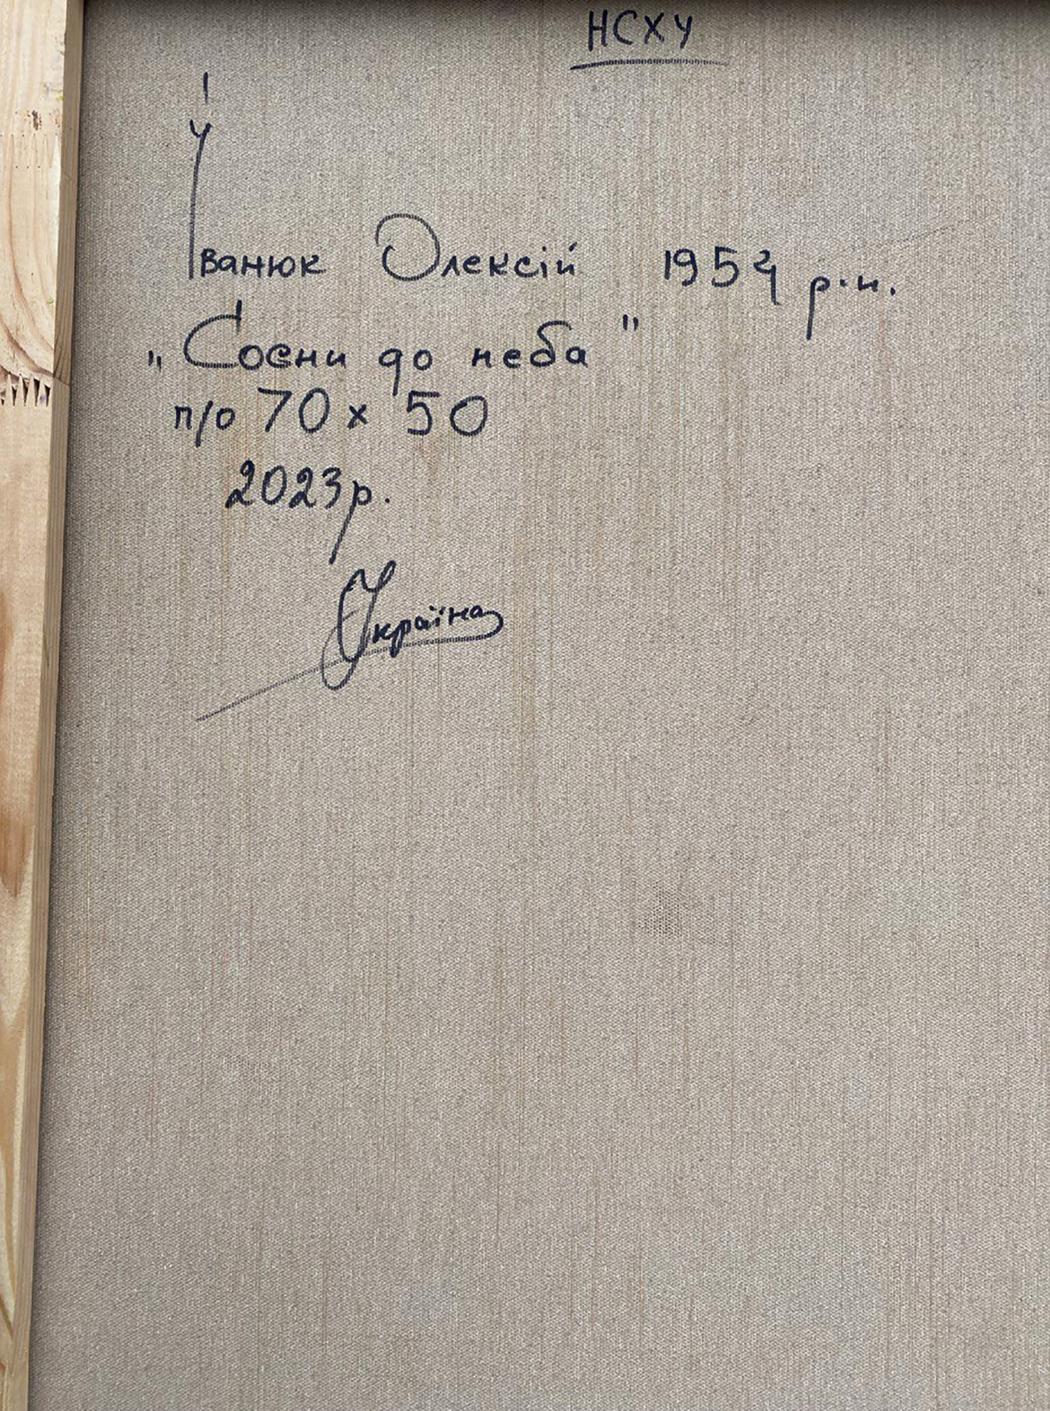 НСХУ
Іванюк Олексій 1954 р.н.
„Сосни до неба"
п/о 70 х 50
2023р.
Україна